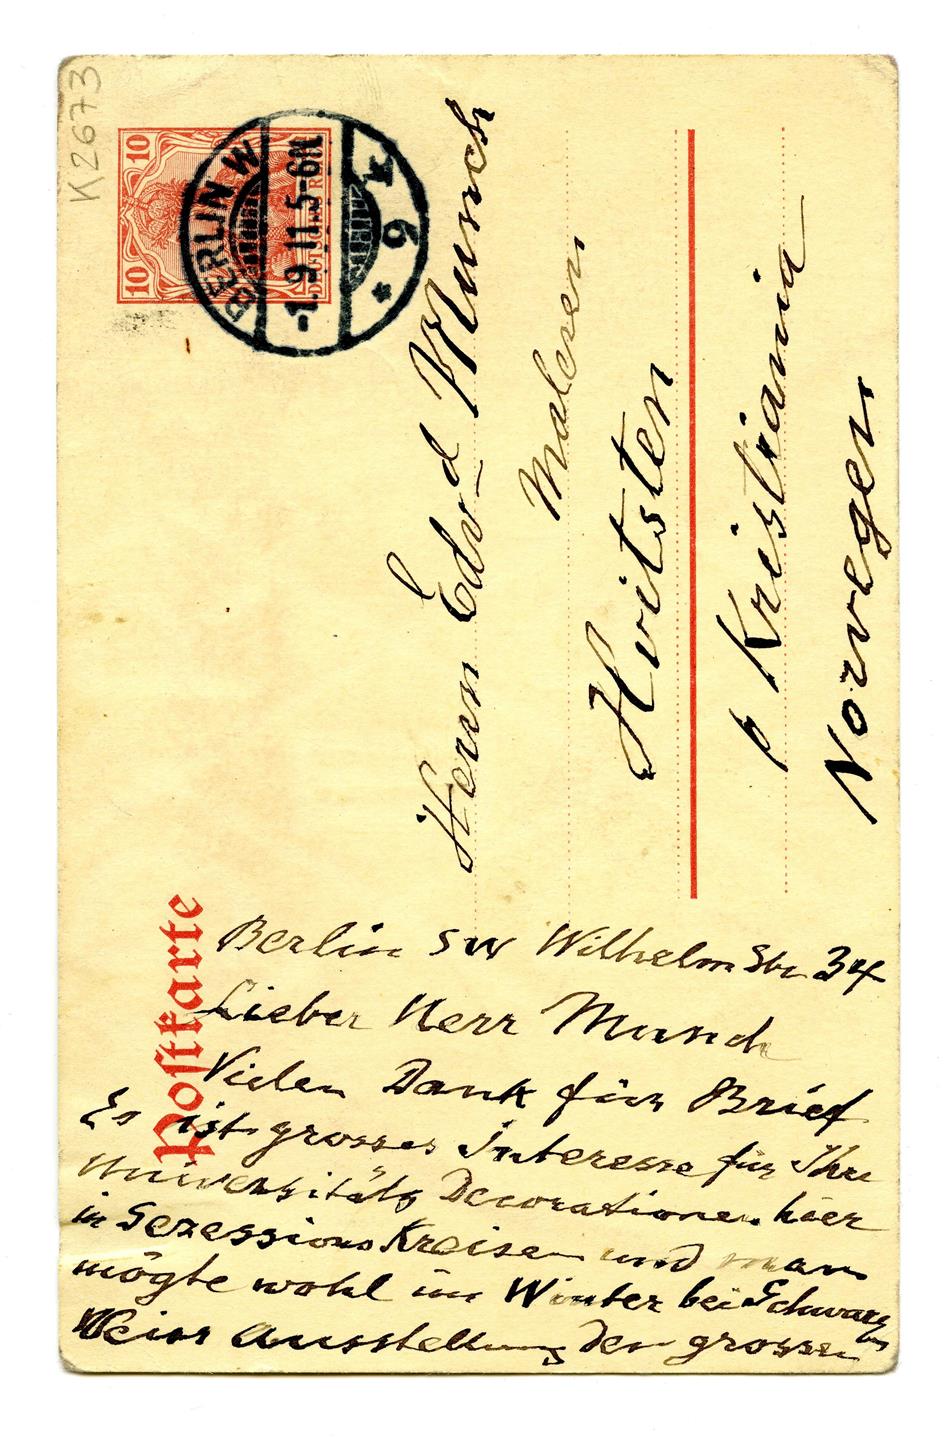 K2673
10 10
DEUTSCHES REICH
BERLIN W
-1.9.11.5-6N.
* 9 k
Postkarte
Herrn Edvd Munch
Maleren
Hvitsten
p Kristiania
Norwegen
Berlin SW Wilhelm Str 34
Lieber Herr Munch
Vielen Dank für Brief
Es ist grosses Interesse für Ihre
Universitäts Decorationen hier
in Sezessions Kreisen und man
mögte wohl im Winter bei Schwarz
Weiss Ausstellung den grossen